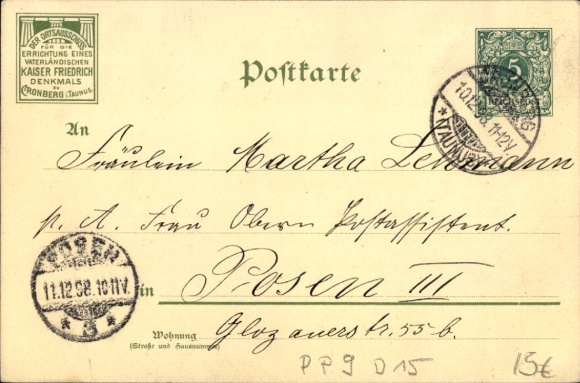 DER ORTSAUSSCHUSS
FÜR DIE
ERRICHTUNG EINES
VATERLÄNDISCHEN
KAISER FRIEDRICH
DENKMALS
ZU
CRONBERG i. TAUNUS.
Postkarte
5
REICHSPOST
CRONBERG
10.12.98. 11-12V.
* (TAUNUS) *
An
Fräulein Martha Lehmann
p. A. Frau Obern Postassistent.
POSEN
11.12.98. 10-11V.
* 3 *
in Posen III
Wohnung
(Straße und Hausnummer)
Glogauerstr. 55 b.
PP 9 D 15
15€